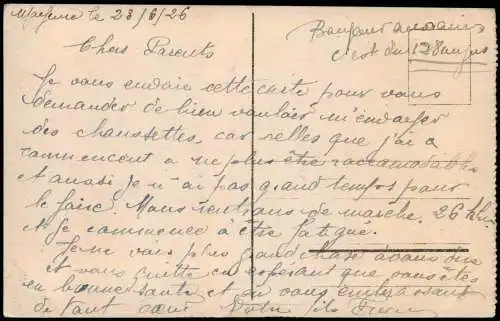 le 23/6/26
Bonjour
c'est du
Chers Parents
Je vous envoie cette carte pour vous
demander de bien vouloir m'envoyer
des chaussettes, car celles que j'ai a
commencent a ne plus être raccomodable
et aussi je n'ai pas grand temps pour
le faire. Nous rentrons de marche. 26 km.
et je commence à être fatigué.
Je ne vois plus grand chose à vous dire
et vous quitte en espérant que vous êtes
en bonne sante et en vous embrassant
de tout cœur Votre fils